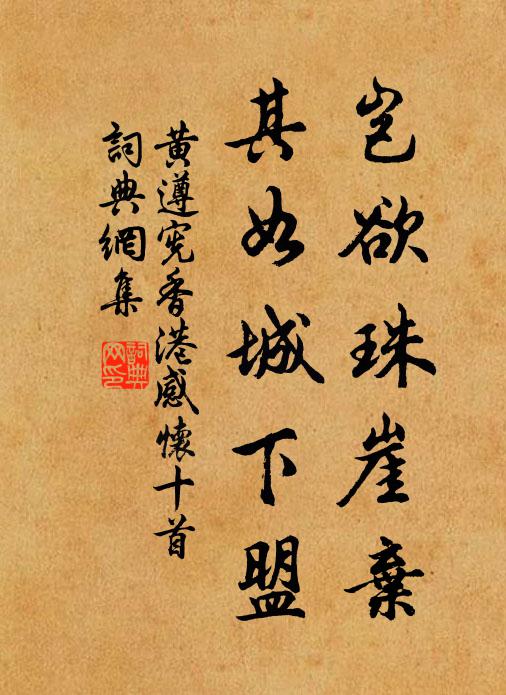 豈欲珠崖棄
其如城下盟
黃遵宪香港感懷十首
詞典網集
詞典網印